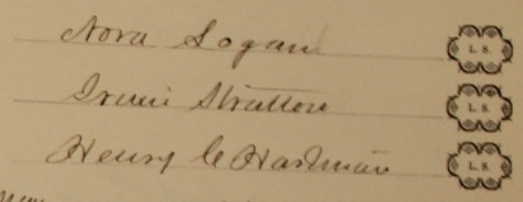 Nora Logan L. S.
Irwin Stratton L. S.
Henry C Hartman L. S.